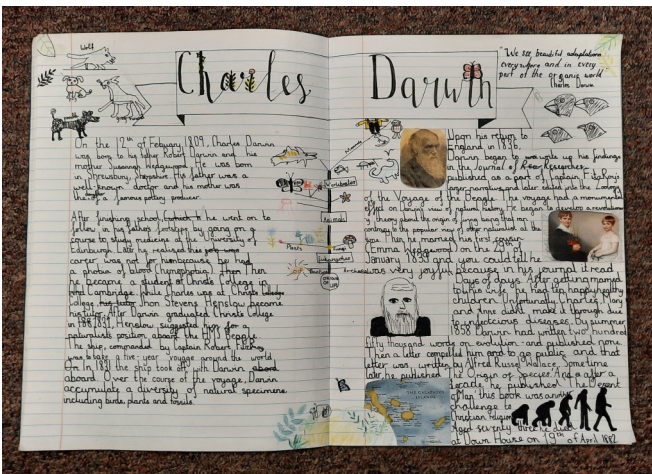 Wolf
Charles
On the 12th of Febuary 1809, Charles Darwin
was born to his father Robert Darwin and his
mother Susannah Wedgwood. He was born
in Shrewsbury, Shropshire. His father was a
well-known doctor and his mother was
the daughter of a famous pottery producer
After finishing school, he went on to
follow in his father's footsteps by going on a
course to study medicine at the University of
Edinburgh. Later he realised this
career was not for him because he had
a phobia of blood (hemophobia). Then
he became a student at Christ's College in
Cambridge. While Charles was at Christ's
College, Jhon Stevens Henslow became
his tutor. After Darwin graduated Christ's College
in 1831, Henslow suggested him for a
naturalists position aboard the HMS Beagle.
The ship, commanded by Captain Robert Fitzroy,
was to take a five-year voyage around the world
In 1831 the ship took off with Darwin
aboard. Over the course of the voyage, Darwin
accumulate a diversity of natural specimens,
including birds, plants and fossils.
Vertebrates
Animals
Plants
Darwin
"We see beautiful adaptations
everywhere and in every
part of the organic world"
Charles Darwin
Upon his return to
England in 1836,
Darwin began to write up his findings
in the Journal of Researches
published as a part of Captain FitzRoy's
larger narrative and later edited into the Zoology
of the Voyage of the Beagle. The voyage had a monumental
effect on Darwin view of natural history. He began to develop a revolutionary
theory about the origin of living beings that ran
contrary to the popular view of other naturalist at the
time. Then he married his first cousin
Emma Wedgwood on the 29th
January 1839 and you could tell he
was very joyful because in his journal it read
"Days of days". After getting married
to his cousin, he had ten happy healthy
children. Unfortunatly Charles, Mary
and Anne didnt make it through due
to infectious diseases. By summer
1858 Darwin had written two hundred
fifty thousand words on evolution - and published none.
Then a letter compelled him to go public and that
letter was written by Alfred Russel Wallace. Sometime
later he published 'The Origin of Species'. And after a
decade he published 'The Descent
of Man' this book was another
challenge to
Christian religion.
Aged seventy three he died
at Down House on 19th of April 1882
THE GALAPAGOS
ISLANDS